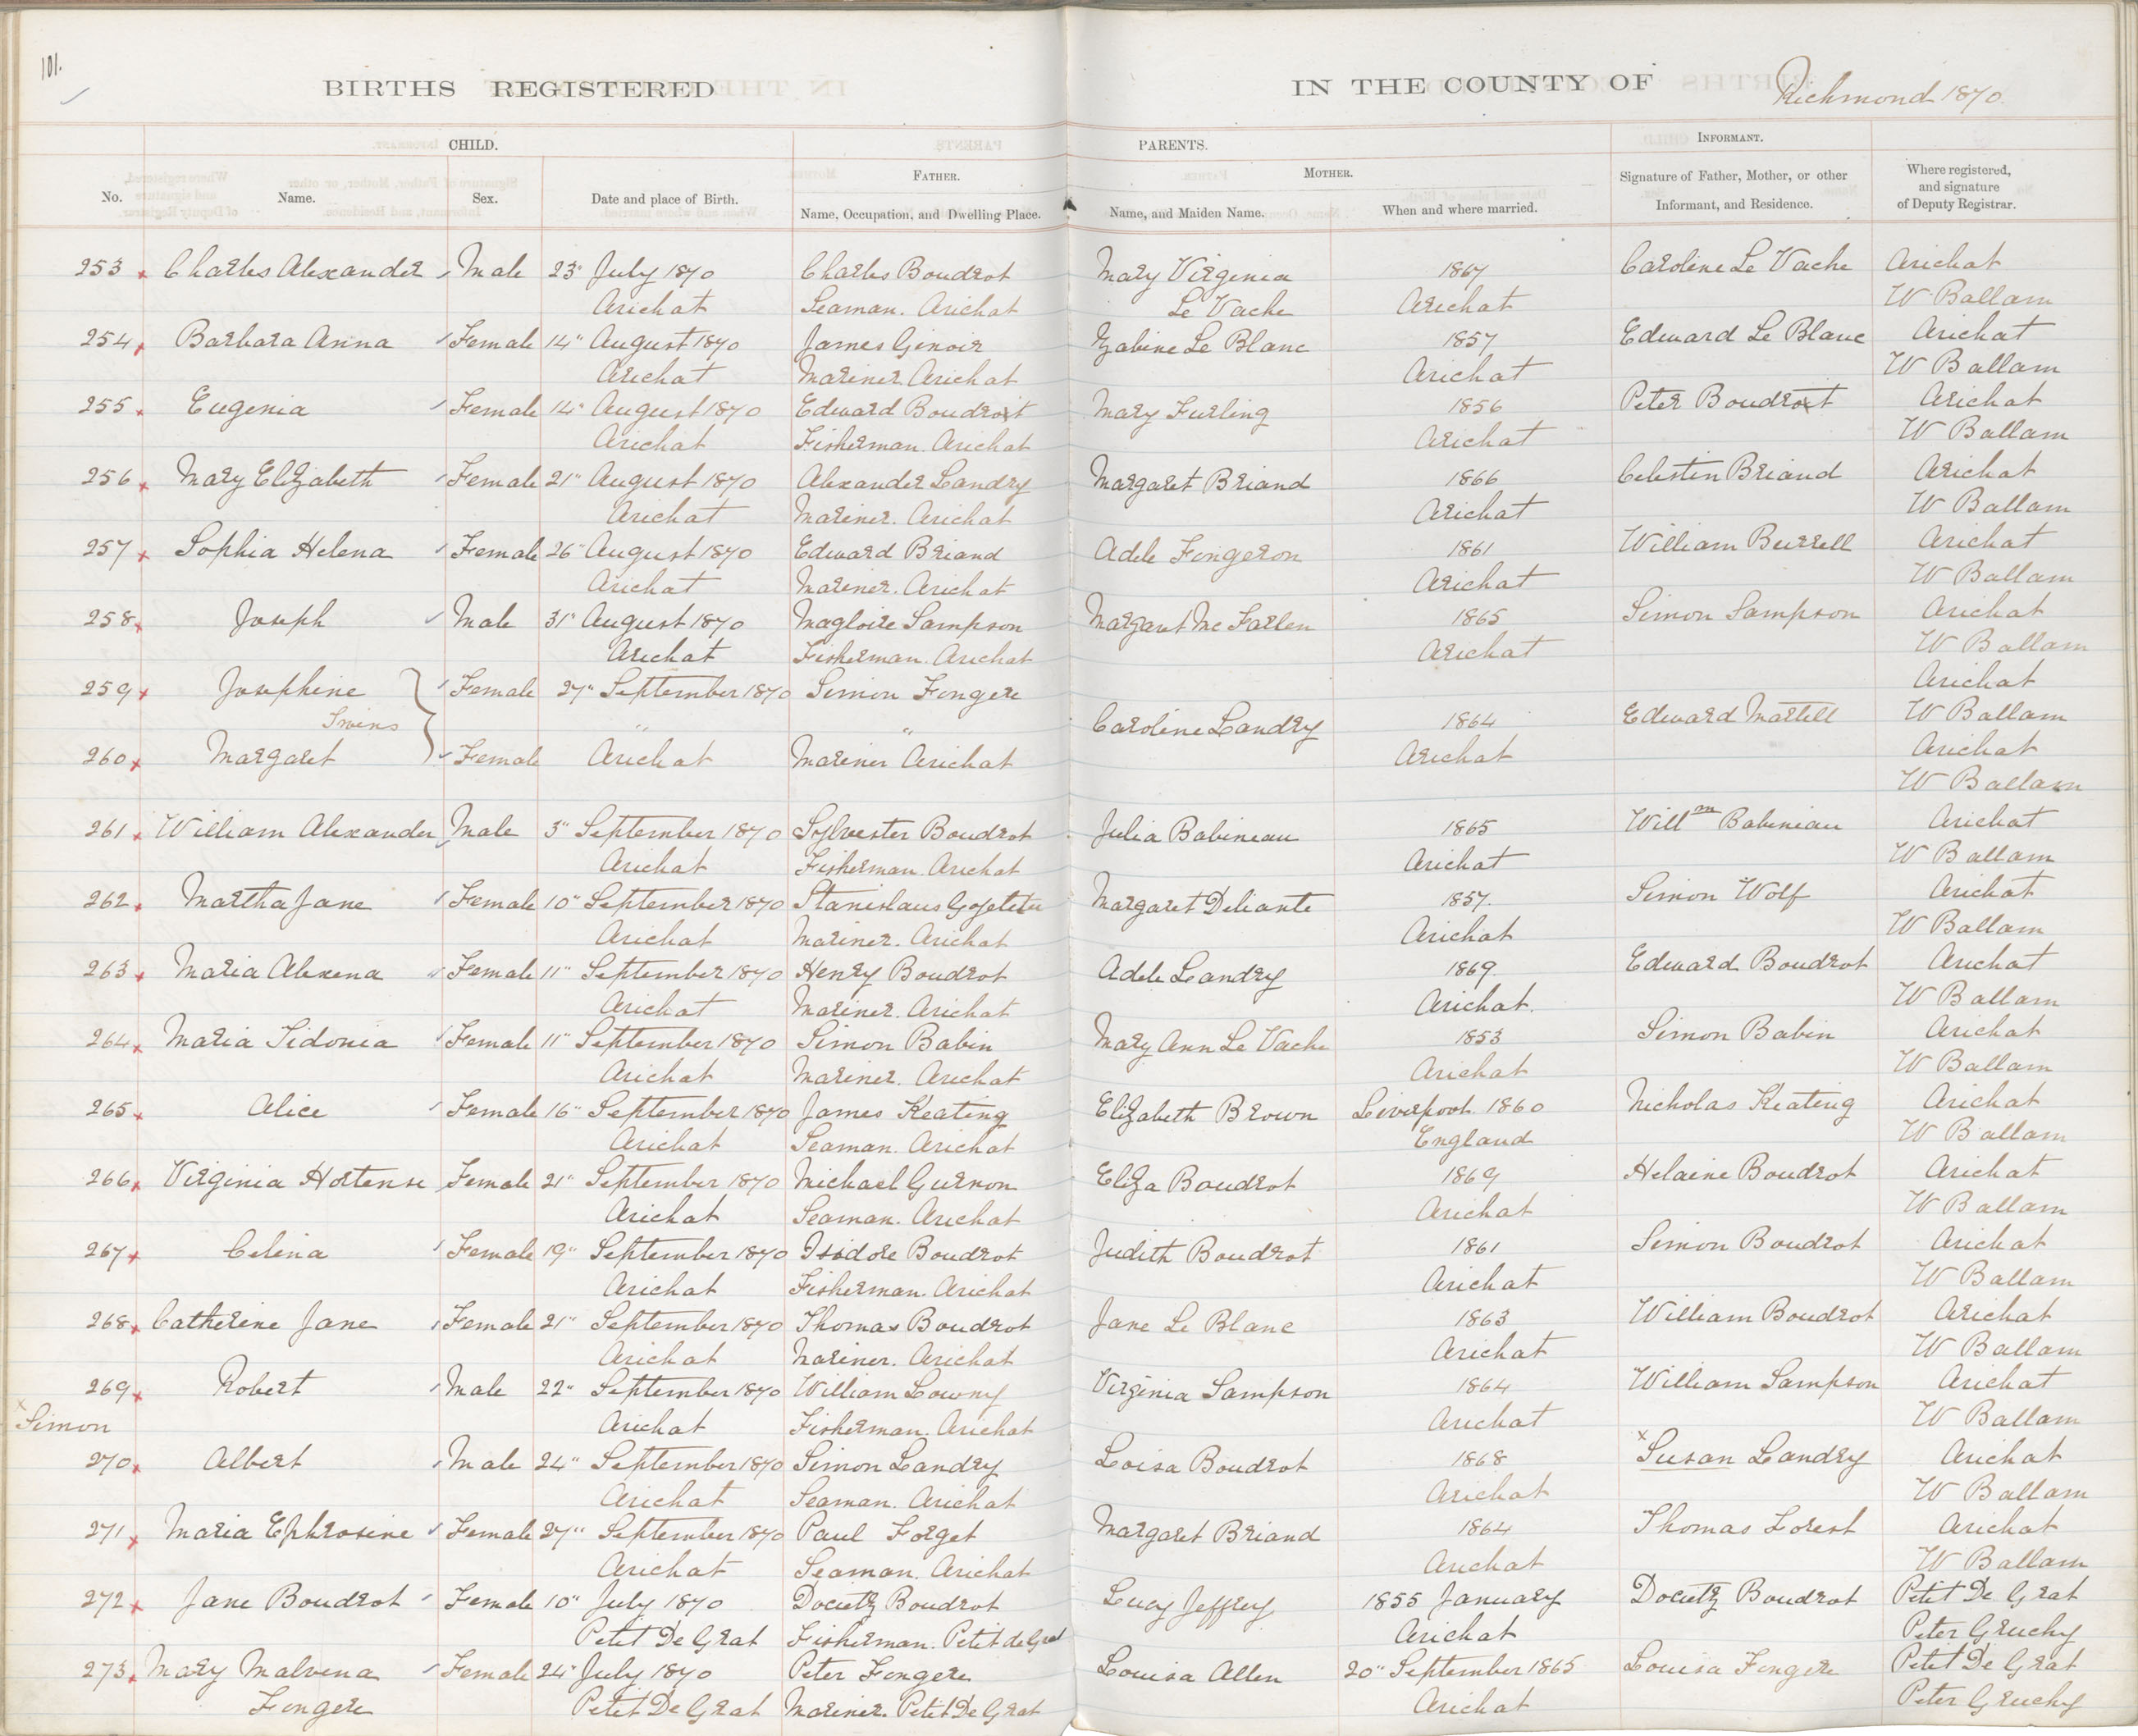 101.
BIRTHS REGISTERED IN THE COUNTY OF Richmond 1870.
CHILD. PARENTS. INFORMANT.
FATHER. MOTHER.
No. Name. Sex. Date and place of Birth. Name, Occupation, and Dwelling Place. Name, and Maiden Name. When and where married. Signature of Father, Mother, or other Informant, and Residence. Where registered, and signature of Deputy Registrar.
253 Charles Alexander Male 23" July 1870 Charles Boudrot Mary Virginia 1867 Caroline Le Vache Arichat
Arichat Seaman. Arichat Le Vache Arichat W Ballam
254 Barbara Anna Female 14" August 1870 James Genoir Zabine Le Blanc 1857 Edward Le Blanc Arichat
Arichat Mariner Arichat Arichat W Ballam
255 Eugenia Female 14" August 1870 Edward Boudroit Mary Furling 1856 Peter Boudroit Arichat
Arichat Fisherman. Arichat Arichat W Ballam
256 Mary Elizabeth Female 21" August 1870 Alexander Landry Margaret Briand 1866 Celestin Briand Arichat
Arichat Mariner. Arichat Arichat W Ballam
257 Sophia Helena Female 26" August 1870 Edward Briand Adele Fongeron 1861 William Burrell Arichat
Arichat Mariner. Arichat Arichat W Ballam
258 Joseph Male 31" August 1870 Magloire Sampson Margaret Mc Farlen 1865 Simon Sampson Arichat
Arichat Fisherman. Arichat Arichat W Ballam
259 Josephine Female 27" September 1870 Simon Fongere Arichat
Twins " " Caroline Landry 1864 Edward Martell W Ballam
260 Margaret Female Arichat Mariner Arichat Arichat Arichat
W Ballam
261 William Alexander Male 3" September 1870 Sylvester Boudrot Julia Babineau 1865 Willm Babineau Arichat
Arichat Fisherman. Arichat Arichat W Ballam
262 Martha Jane Female 10" September 1870 Stanislaus Margaret Deliante 1857. Simon Wolf Arichat
Arichat Mariner. Arichat Arichat W Ballam
263 Maria Alexena Female 11" September 1870 Henry Boudrot Adele Landry 1869. Edward Boudrot Arichat
Arichat Mariner. Arichat Arichat. W Ballam
264 Maria Sidonia Female 11" September 1870 Simon Babin Mary Ann Le Vache 1853 Simon Babin Arichat
Arichat Mariner. Arichat Arichat W Ballam
265 Alice Female 16" September 1870 James Keating Elizabeth Brown Liverpool. 1860 Nicholas Keating Arichat
Arichat Seaman. Arichat England W Ballam
266 Virginia Hortense Female 21" September 1870 Michael Gurnon Eliza Boudrot 1869 Helaire Boudrot Arichat
Arichat Seaman. Arichat Arichat W Ballam
267 Celina Female 19" September 1870 Isidore Boudrot Judith Boudrot 1861 Simon Boudrot Arichat
Arichat Fisherman. Arichat Arichat W Ballam
268 Catherine Jane Female 21" September 1870 Thomas Boudrot Jane Le Blanc 1863 William Boudrot Arichat
Arichat Mariner. Arichat Arichat W Ballam
269 Robert Male 22" September 1870 William Lowny Virginia Sampson 1864 William Sampson Arichat
x Simon Arichat Fisherman. Arichat Arichat W Ballam
270 Albert Male 24" September 1870 Simon Landry Loisa Boudrot 1868 x Susan Landry Arichat
Arichat Seaman. Arichat Arichat W Ballam
271 Maria Ephrosine Female 27" September 1870 Paul Forget Margaret Briand 1864 Thomas Forest Arichat
Arichat Seaman. Arichat Arichat W Ballam
272 Jane Boudrot Female 10" July 1870 Docietz Boudrot Lucy Jeffrey 1855 January Docietz Boudrot Petit De Grat
Petit De Grat Fisherman. Petit de Grat Arichat Peter Gruchy
273 Mary Malvina Female 24" July 1870 Peter Fongere Louisa Allen 20" September 1865 Louisa Fongere Petit De Grat
Fongere Petit De Grat Mariner. Petit De Grat Arichat Peter Gruchy